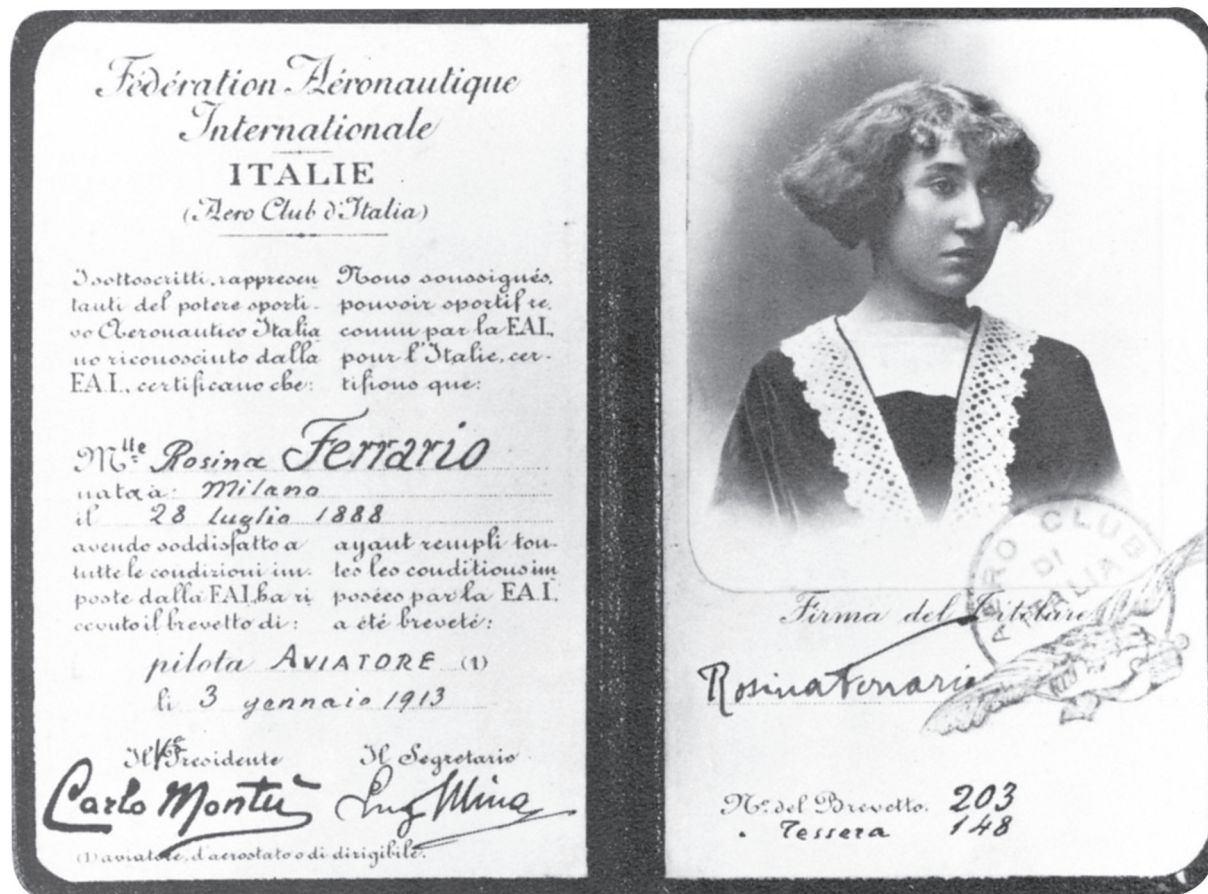 Fédération Aéronautique
Internationale
ITALIE
(Aero Club d'Italia)
I sottoscritti, rappresen
tanti del potere sporti-
vo Aeronautico Italia
no riconosciuto dalla
F.A.I., certificano che:
Nous soussignés,
pouvoir sportif re.
connu par la F.A.I.,
pour l'Italie, cer-
tifions que:
Mlle Rosina Ferrario
nata à: Milano
il 28 Luglio 1888
avendo soddisfatto a
tutte le condizioni im-
poste dalla F.A.I. ha ri
cevuto il brevetto di:
ayant rempli tou-
tes les conditions im
posées par la F.A.I.
a été breveté:
pilota AVIATORE (1)
li 3 gennaio 1913
Il Presidente
Carlo Montù
Il Segretario
Mina
(1) aviatore, d'aerostato o di dirigibile.
AERO CLUB
DI
ITALIA
Firma del Titolare
Rosina Ferrario
No. del Brevetto. 203
. Tessera 148